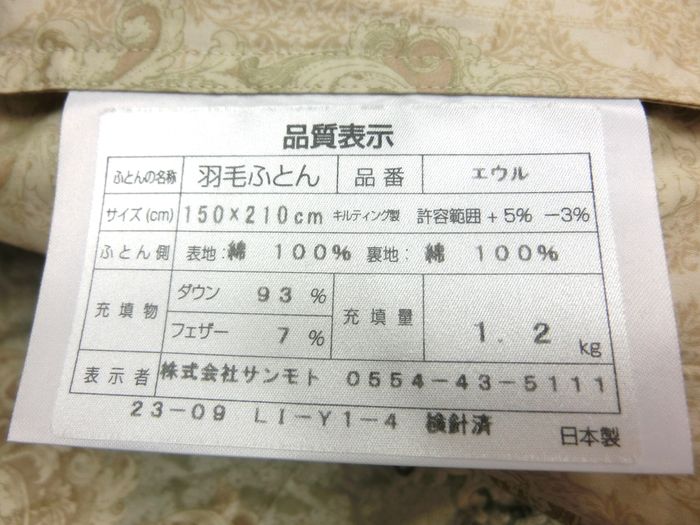 品質表示
ふとんの名称 羽毛ふとん 品番 エウル
サイズ(cm) 150×210cm キルティング製 許容範囲 +5% -3%
ふとん側 表地:綿 100% 裏地:綿 100%
充填物 ダウン 93 % 充填量 1.2 kg
フェザー 7 %
表示者 株式会社サンモト 0554-43-5111
23-09 LI-Y1-4 検針済 日本製